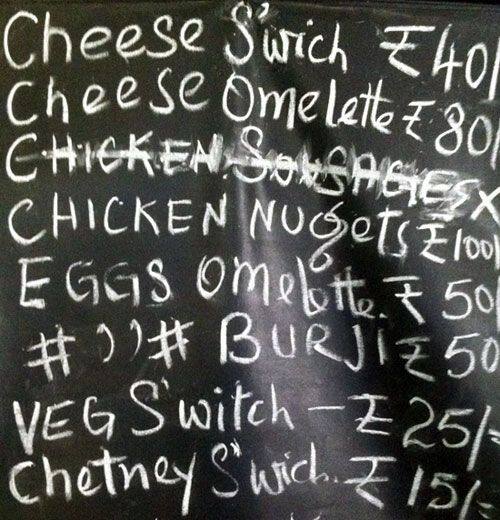 Cheese S'wich ₹40/
Cheese Omelette ₹80/
CHICKEN SOUSAGES X
CHICKEN NUGGETS ₹100/
EGGS Omelette. ₹50
# ))# BURJI ₹50
VEG S'witch - ₹25/=
Chetney S'wich. ₹15/=